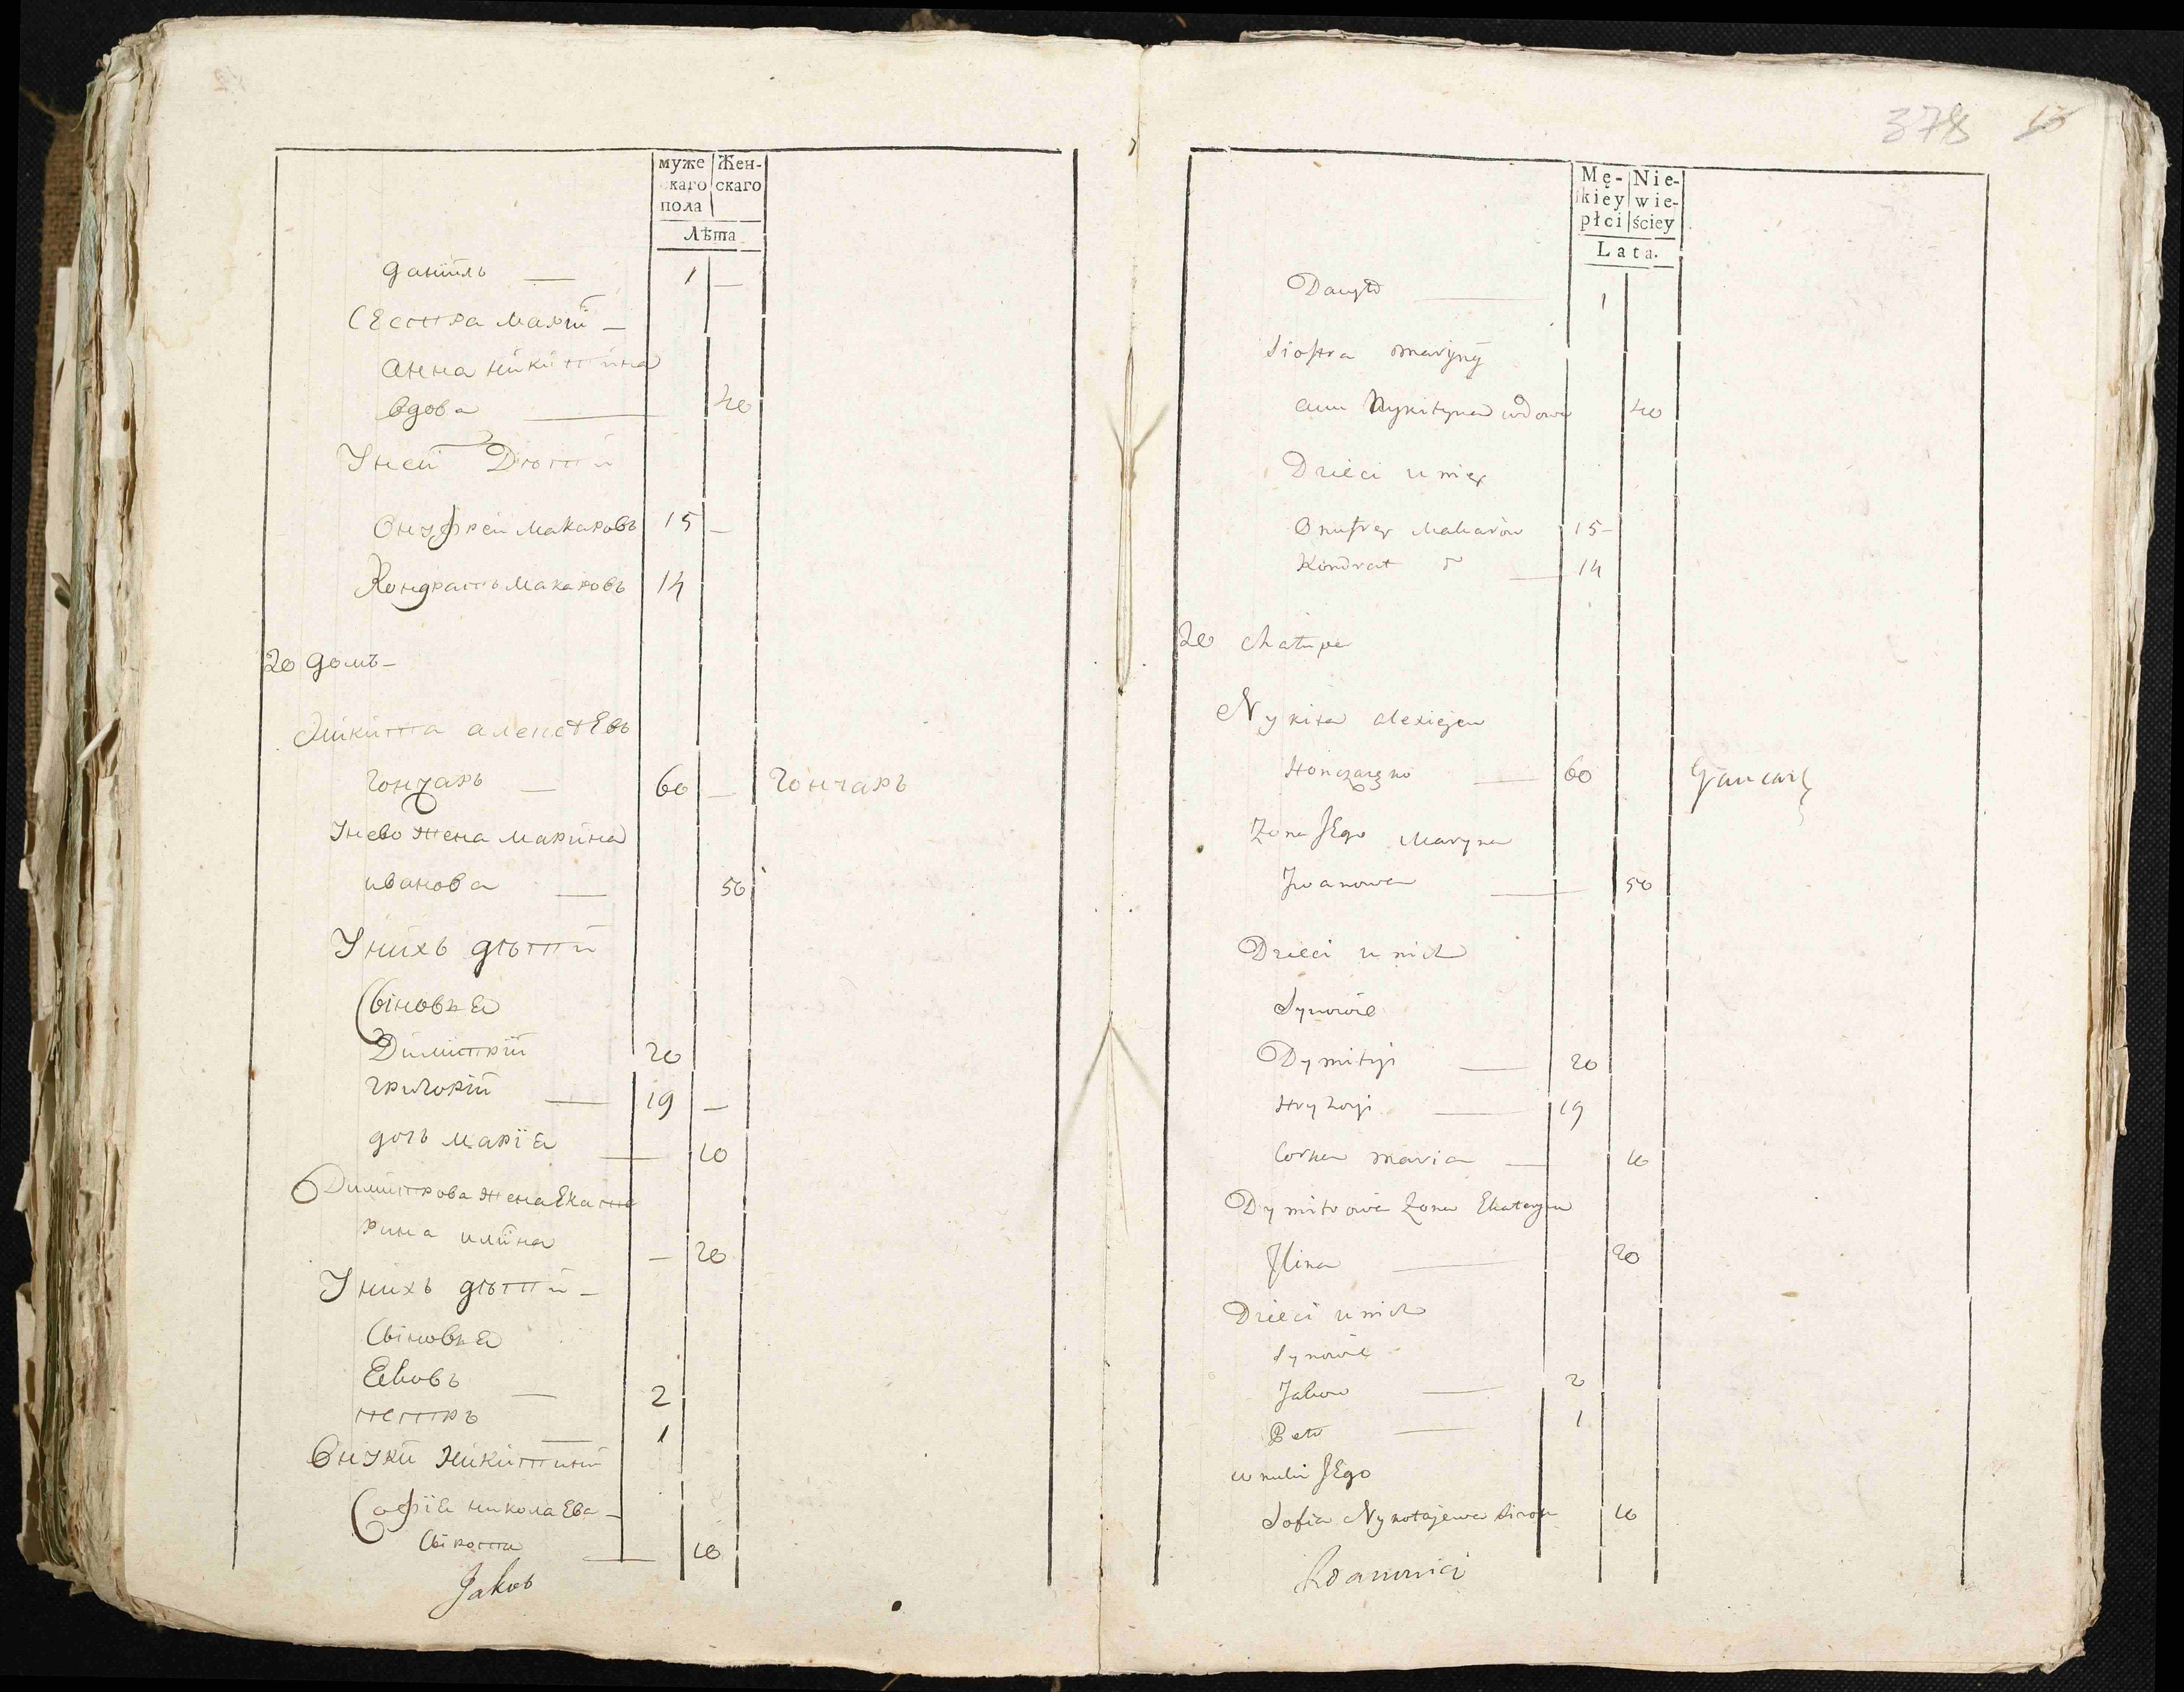 муже Жен-
скаго скаго
пола
Лѣта
даниилъ — 1 —
Сестра Марiи —
анна никитина
вдова — 40
У неи Дѣти
Онуфреи Макаровъ 15 —
Кондратъ Макаровъ 14
20 домъ —
Никита алексѣевъ
гончаръ — 60 — гончаръ
У нево жена марина
иванова — 50
У нихъ дѣти
Сыновья
Димитрiи 20
григорiи — 19 —
дочь марiя — 10
Димитрова жена Екате
рина илiина — 20
У нихъ дѣти —
Сыновья
Яковъ — 2
петръ — 1
Внуки никитины
Софiя николаева —
сырота — 10
Jakob
378 13
Mę- Nie-
kiey wie-
płci ściey
Lata.
1
Siostra maryny
Nykityna wdowa 40
Dzieci u niey
Onufrey Makarow 15 —
Kondrat — 14
20 chałupa
Nykita alexiejew
Honczarzno — 60 Gancarz
Zona JEgo Maryna
Jwanowa — 50
Dzieci u nich
Synowie
Dymitryi — 20
Hryhoryi — 19
Corka maria — 10
Dymitrowa Zona Ekateryna
Jlina — 20
Dzieci u nich
Synowie
Jakow — 2
Petr — 1
wnuki JEgo
Sofia Nykołajewa sirota 10